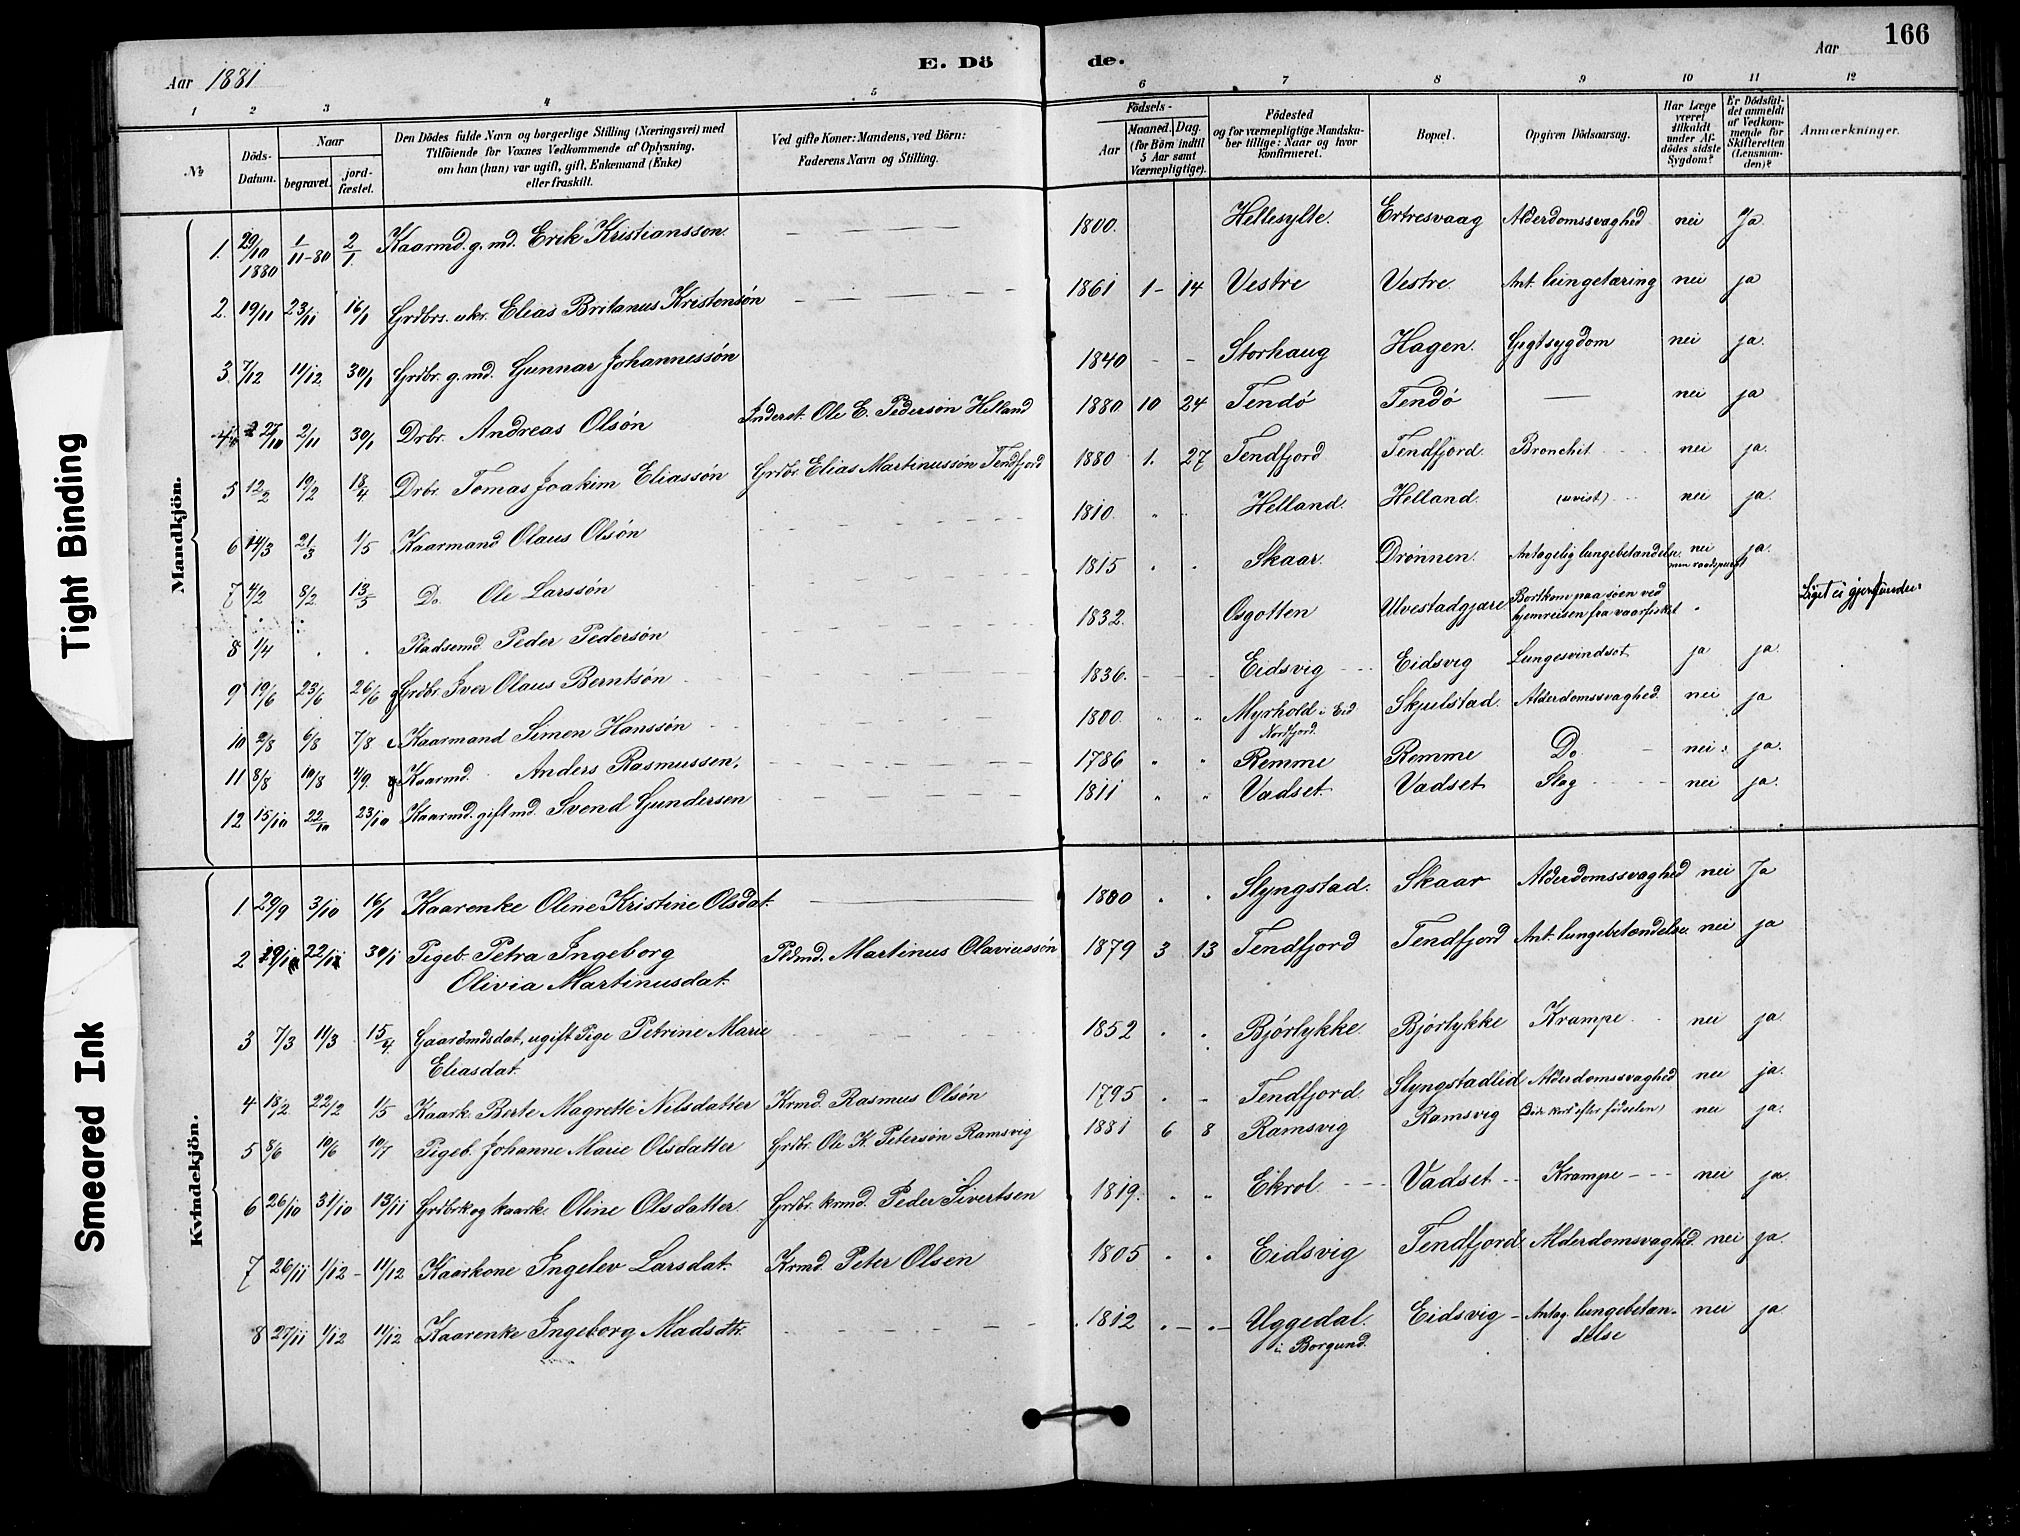 166
Aar 1881
E. Dö
de.
Aar
1 2 3 4 5 6 7 8 9 10 11 12
No
Döds-
Datum.
Naar
begravet.
jord-
fæstet.
Den Dödes fulde Navn og borgerlige Stilling (Næringsvei) med
Tilföiende for Voxnes Vedkommende af Oplysning,
om han (hun) var ugift, gift, Enkemand (Enke)
eller fraskilt.
Ved gifte Koner: Mandens, ved Börn:
Faderens Navn og Stilling.
Födsels-
Aar
Maaned. Dag.
(for Börn indtil
5 Aar samt
Værnepligtige).
Födested
og for værnepligtige Mandska-
ber tillige: Naar og hvor
konfirmeret.
Bopæl.
Opgiven Dödsaarsag.
Har Læge
været
tilkaldt
under Af-
dödes sidste
Sygdom?
Er Dödsfal-
det anmeldt
af Vedkom-
mende for
Skifteretten
(Lensman-
den)?
Anmærkninger.
Mandkjön.
1. 29/10 1880 1/11-80 2/1. Kaarmd. g. md. Erik Kristiansson. 1800. Hellesylte. Ertresvaag Alderdomssvaghed nei Ja.
2. 19/11 23/11 16/1 Grdbrs. ukr. Elias Britanus Kristensøn 1861 1- 14 Vestre Vestre Ant. lungetæring nei ja
3. 7/12 11/12 30/1 Grdbr. g. md. Gunnar Johannessøn 1840 - - Storhaug Hagen. Gigtsygdom nei ja.
4. 27/10 2/11 30/1 Drbr. Andreas Olsøn Inderst. Ole E. Pedersøn Helland 1880 10 24 Tendø Tendø nei ja
5 12/2 19/2 18/4 Drbr. Tomas Joakim Eliassøn Grdbr. Elias Martinussøn Tendfjord 1880 1. 27 Tendfjord Tendfjord. Bronchit nei ja.
6 14/3 21/3 1/5 Kaarmand Olaus Olsøn 1810. Helland. Helland. (uvist) nei ja.
7 4/2 8/2 13/5 Do. Ole Larssøn 1815 Skaar. Drønnen. Antagelig lungebetændelse nei men raadspurgt ja.
8 1/4 . . Pladsemd. Peder Pedersøn 1832. Osgotten Ulvestadgjære Bortkom paa søen ved
hjemreisen fra vaarfisket Liget ei gjenfunden
9 19/6 23/6 26/6 g Grdbr. Iver Olaus Berntsøn 1836. Eidsvig Eidsvig Lungesvindsot ja ja
10 2/8 6/8 7/8 Kaarmand Simen Hanssøn 1800. Myrhold i Eid
Nordfjord. Skjulstad. Alderdomssvaghed. nei ja
11 8/8 10/8 4/9. g Kaarmd. Anders Rasmussen, 1786 Remme Remme Do nei ja.
12 15/10 22/10 23/10 Kaarmd. gift md. Svend Gundersen 1811 Vadset Vadset Slag nei ja.
Kvindekjön.
1 29/9 3/10 16/1 Kaarenke Oline Kristine Olsdat. 1800 Slyngstad. Skaar Alderdomssvaghed nei Ja
2 22/11 30/1 Pigeb. Petra Ingeborg
Olivia Martinusdat. Pldmd. Martinus Olaviussøn 1879 3 13 Tendfjord Tendfjord Ant. lungebetændelse nei ja
3 7/3 11/3 15/4. Gaardmdsdat, ugift Pige Petrine Marie
Eliasdat. 1852 Bjørlykke. Bjørlykke Krampe nei ja.
4 18/2 22/2 1/5 Kaark. Berte Magrette Nilsdatter Krmd. Rasmus Olsøn 1795 Tendfjord. Slyngstadlid Alderdomssvaghed nei ja.
5 8/6 10/6 10/7 Pigeb. Johanne Marie Olsdatter Grdbr. Ole K. Petersøn Ramsvig 1881 6 8 Ramsvig Ramsvig (Døde kort efter fødselen) nei ja.
6 26/10 31/10 13/11 Grdbrk og kaark. Oline Olsdatter. Grdbr. krmd. Peder Sivertsen 1819. Ekrol. Vadset Krampe nei ja.
7 26/11 1/12 11/12 Kaarkone Ingelev Larsdat. Krmd. Peter Olsen 1805 Eidsvig Tendfjord Alderdomsvaghed. nei ja.
8 27/11 1/12 11/12 Kaarenke Ingeborg Madsdtr. 1812 Uggedal.
i Borgund. Eidsvig Antag. lungebetæn-
delse nei ja.
Tight Binding
Smeared Ink